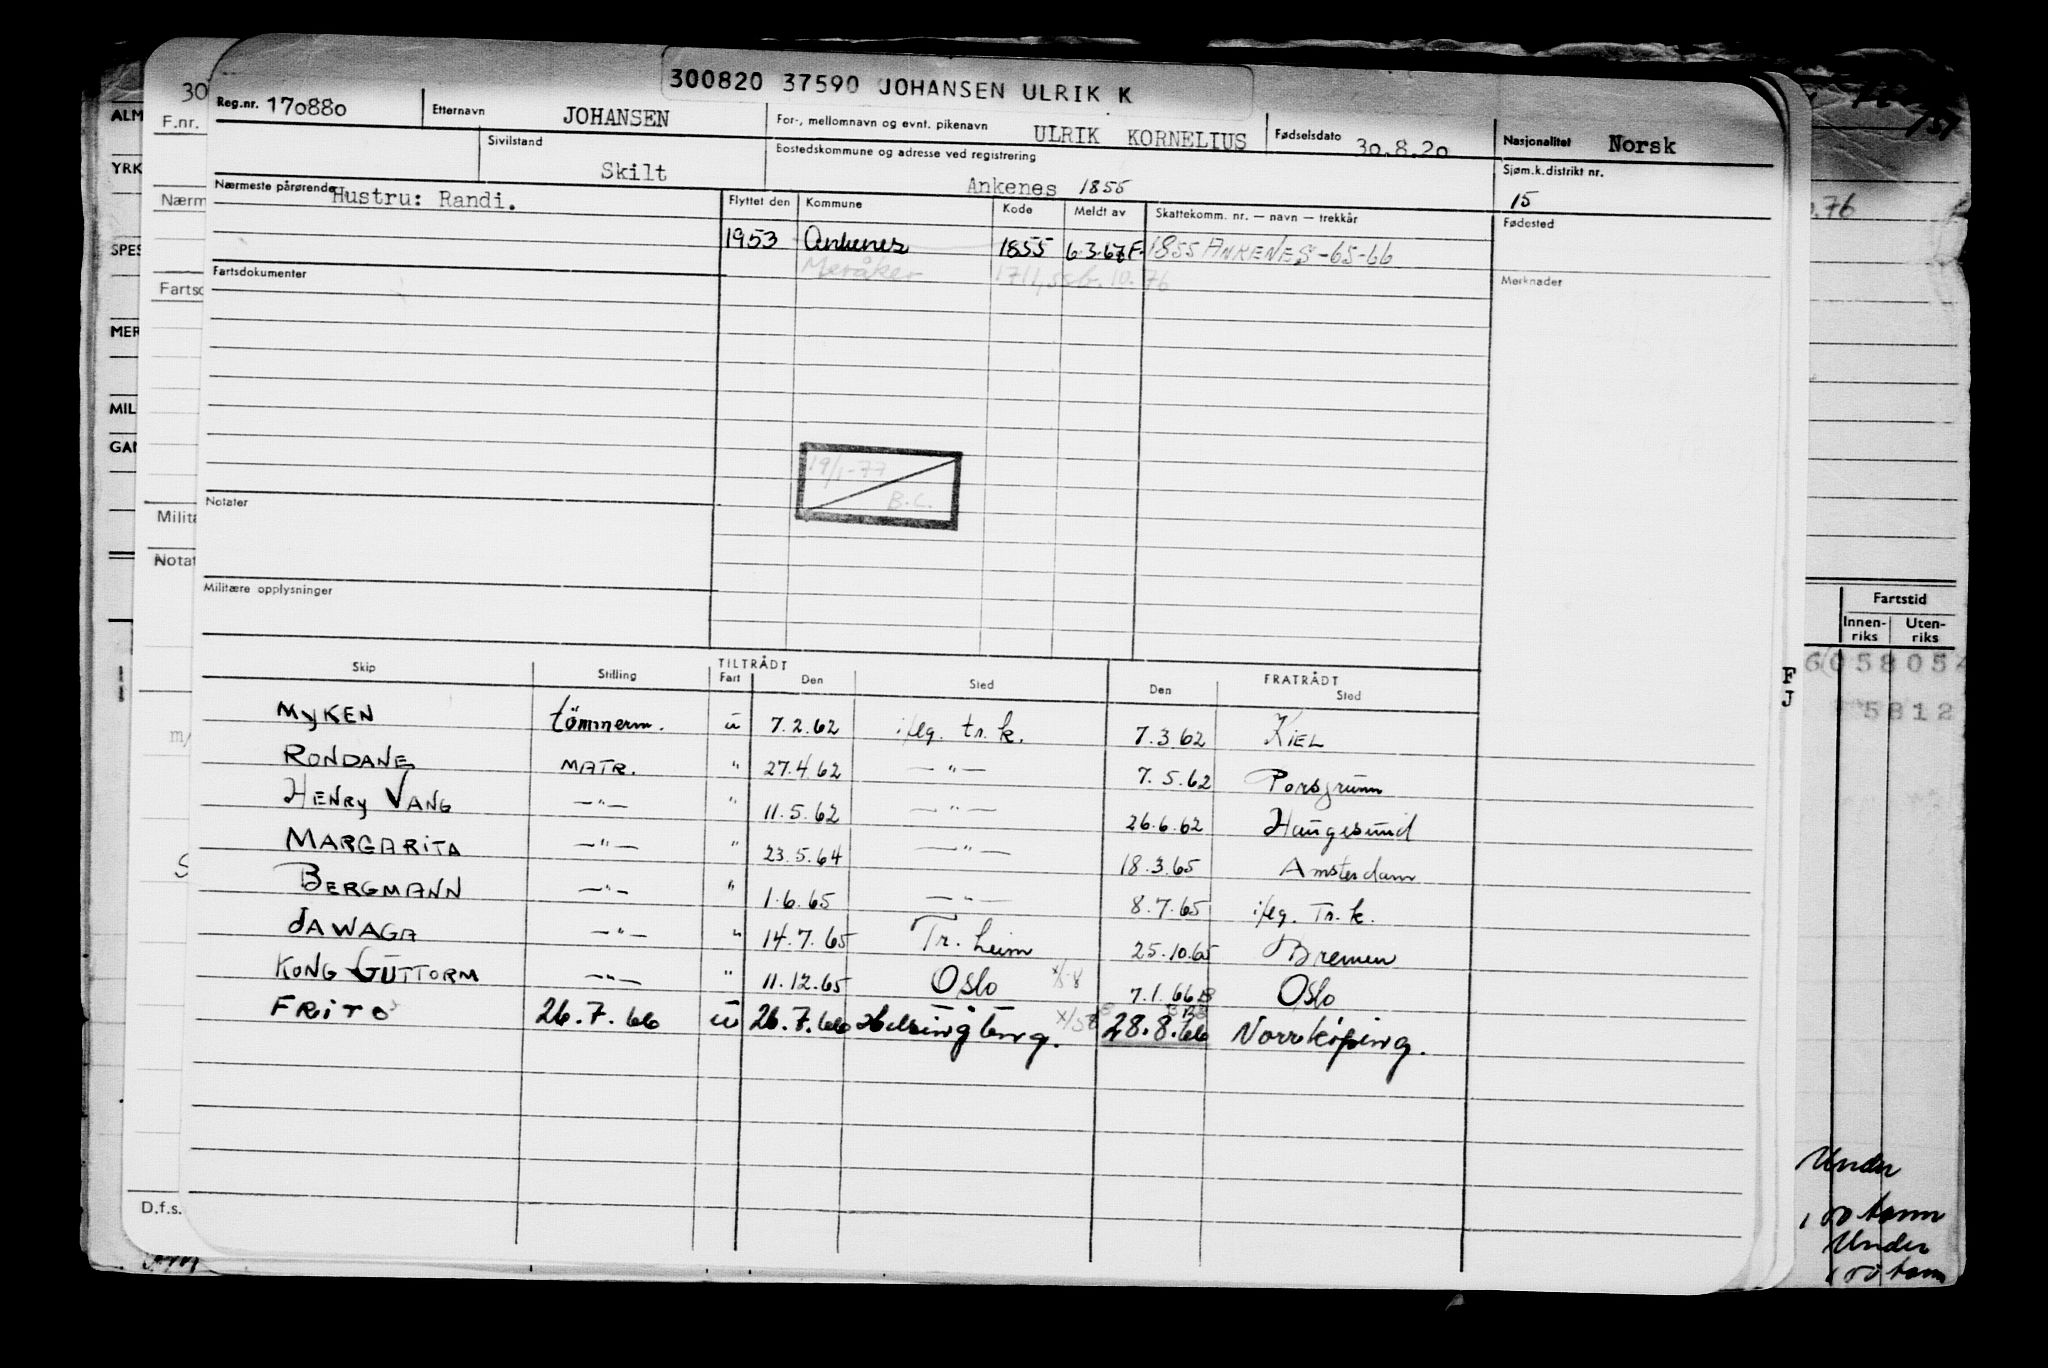 300820 37590 JOHANSEN ULRIK K
Reg.nr. 170880
Etternavn JOHANSEN
For-, mellomnavn og evnt. pikenavn ULRIK KORNELIUS
Fødselsdato 30.8.20
Nasjonalitet Norsk
Sivilstand Skilt
Bostedskommune og adresse ved registrering Ankenes 1855
Sjøm.k.distrikt nr. 15
Nærmeste pårørende Hustru: Randi.
Flyttet den Kommune Kode Meldt av Skattekomm. nr. — navn — trekkår
Fødested
1953 Ankenes 1855 6.3.67 F. 1855 ANKENES -65-66
Meråker 1711 10.76
Fartsdokumenter
Merknader
19/1-77
B.C.
Notater
Militære opplysninger
TILTRÅDT FRATRÅDT
Skip Stilling Fart Den Sted Den Sted
MYKEN tömmerm. u 7.2.62 iflg. tr.k. 7.3.62 KIEL
RONDANE MATR. " 27.4.62 —"— 7.5.62 Porsgrunn
HENRY VANG —"— " 11.5.62 —"— 26.6.62 Haugesund
MARGARITA —"— " 23.5.64 —"— 18.3.65 Amsterdam
BERGMANN —"— " 1.6.65 —"— 8.7.65 iflg. Tr.k.
JAWAGA —"— " 14.7.65 Tr.heim 25.10.65 Bremen
KONG GUTTORM —"— " 11.12.65 Oslo 7.1.66 Oslo
FRITO 26.7.66 u 26.7.66 Helsingborg. 28.8.66 Norrköping.
30
F.nr.
Nærm
Fartsd
Milita
Notat
m/
S
D.f.s.
ALM
YRK
SPES
MER
MIL
GAN
.76
Fartstid
Innen-riks Uten-riks
6 058054
5812
F
J
Under
100 tonn
Under
100 tonn